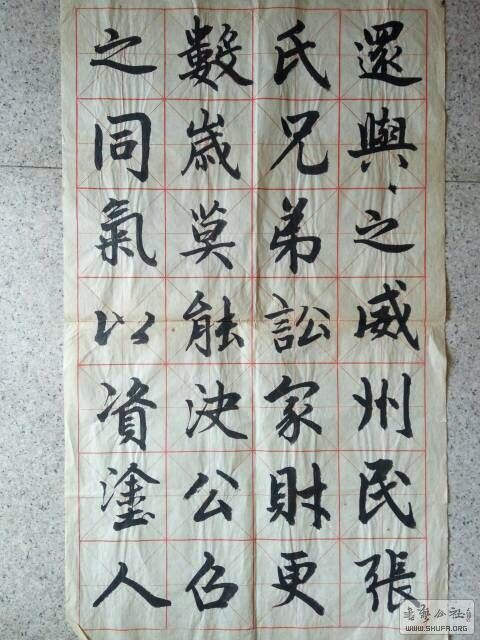 還與之威州民張
氏兄弟訟家財更
數歲莫能決公召
之同氣以資塗人
書藝公社
WWW.SHUFA.ORG